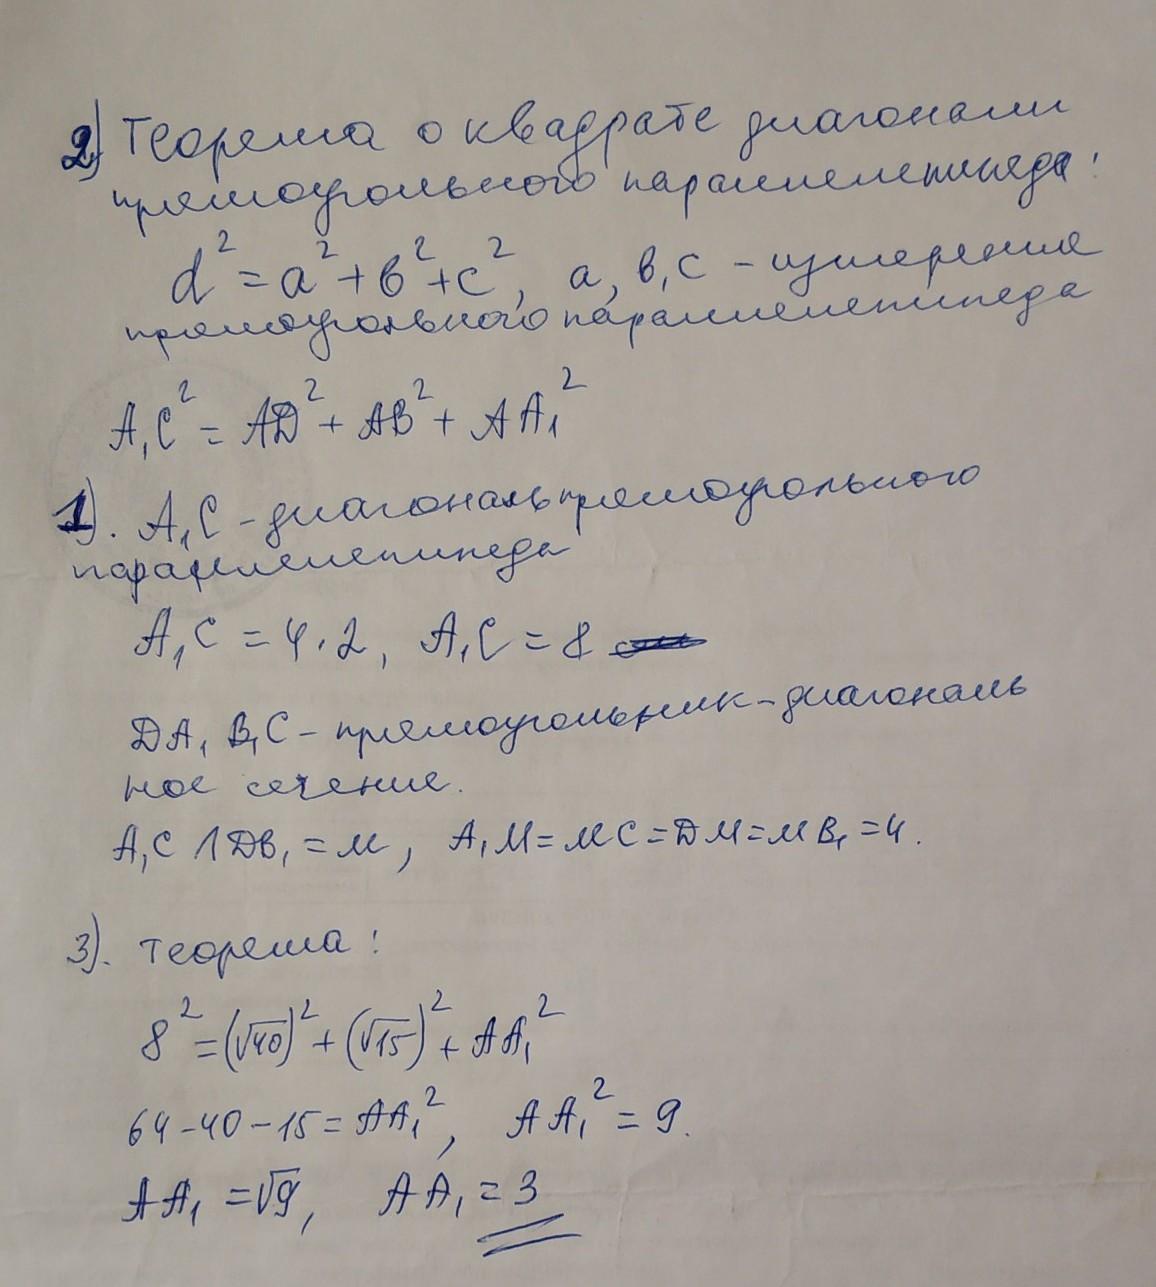 2) Теорема о квадрате диагонали
прямоугольного параллелепипеда:
d² = a² + в² + c², a, в, c - измерения
прямоугольного параллелепипеда
A₁C² = AD² + AB² + AA₁²
1). A₁C - диагональ прямоугольного
параллелепипеда
A₁C = 4·2, A₁C = 8
DA₁B₁C - прямоугольник - диагональ
ное сечение.
A₁C ∩ DB₁ = M, A₁M = MC = DM = MB₁ = 4.
3). Теорема:
8² = (√40)² + (√15)² + AA₁²
64 - 40 - 15 = AA₁², AA₁² = 9.
AA₁ = √9, AA₁ = 3